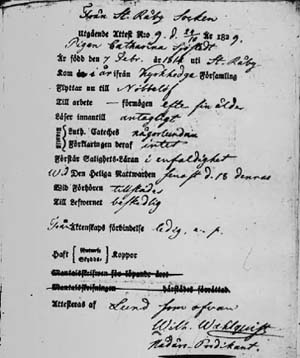 Från St. Råby Socken
Utgående Attest Nro 9. d. 24/10 År 1829.
Pigan Catharina Sjöstedt
Är född den 7 Febr. år 1814 uti St. Råby
Kom i år ifrån Kyrkheddinge Församling
Flyttar nu till Nöbbelöf
Till arbete — förmögen efter sin ålder
Läser innantill antagligt
Luth. Cateches någorlunda
Förklaringen deraf intet
Förstår Salighets-Läran i enfaldighet
Wid Den Heliga Nattwarden senast d. 18 dennes
Wid Förhören tillstädes
Till Lefwernet beskedlig
Från Äktenskaps förbindelse ledig, a. p.
Haft Naturl. Skydds- Koppor
Mantalsskrifwen för löpande året
Mantalsskrifningen härstädes förrättad.
Attesteras af Lund som ofvan
Wilh. Wahlquist